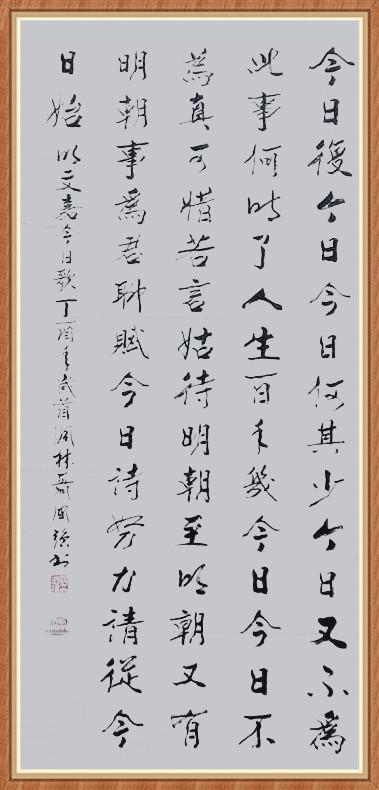 今日復今日今日何其少今日又不為
此事何時了人生百年幾今日今日不
為真可惜若言姑待明朝至明朝又有
明朝事為君聊賦今日詩努力請從今
日始 明文嘉今日歌丁酉年歲首林國強书